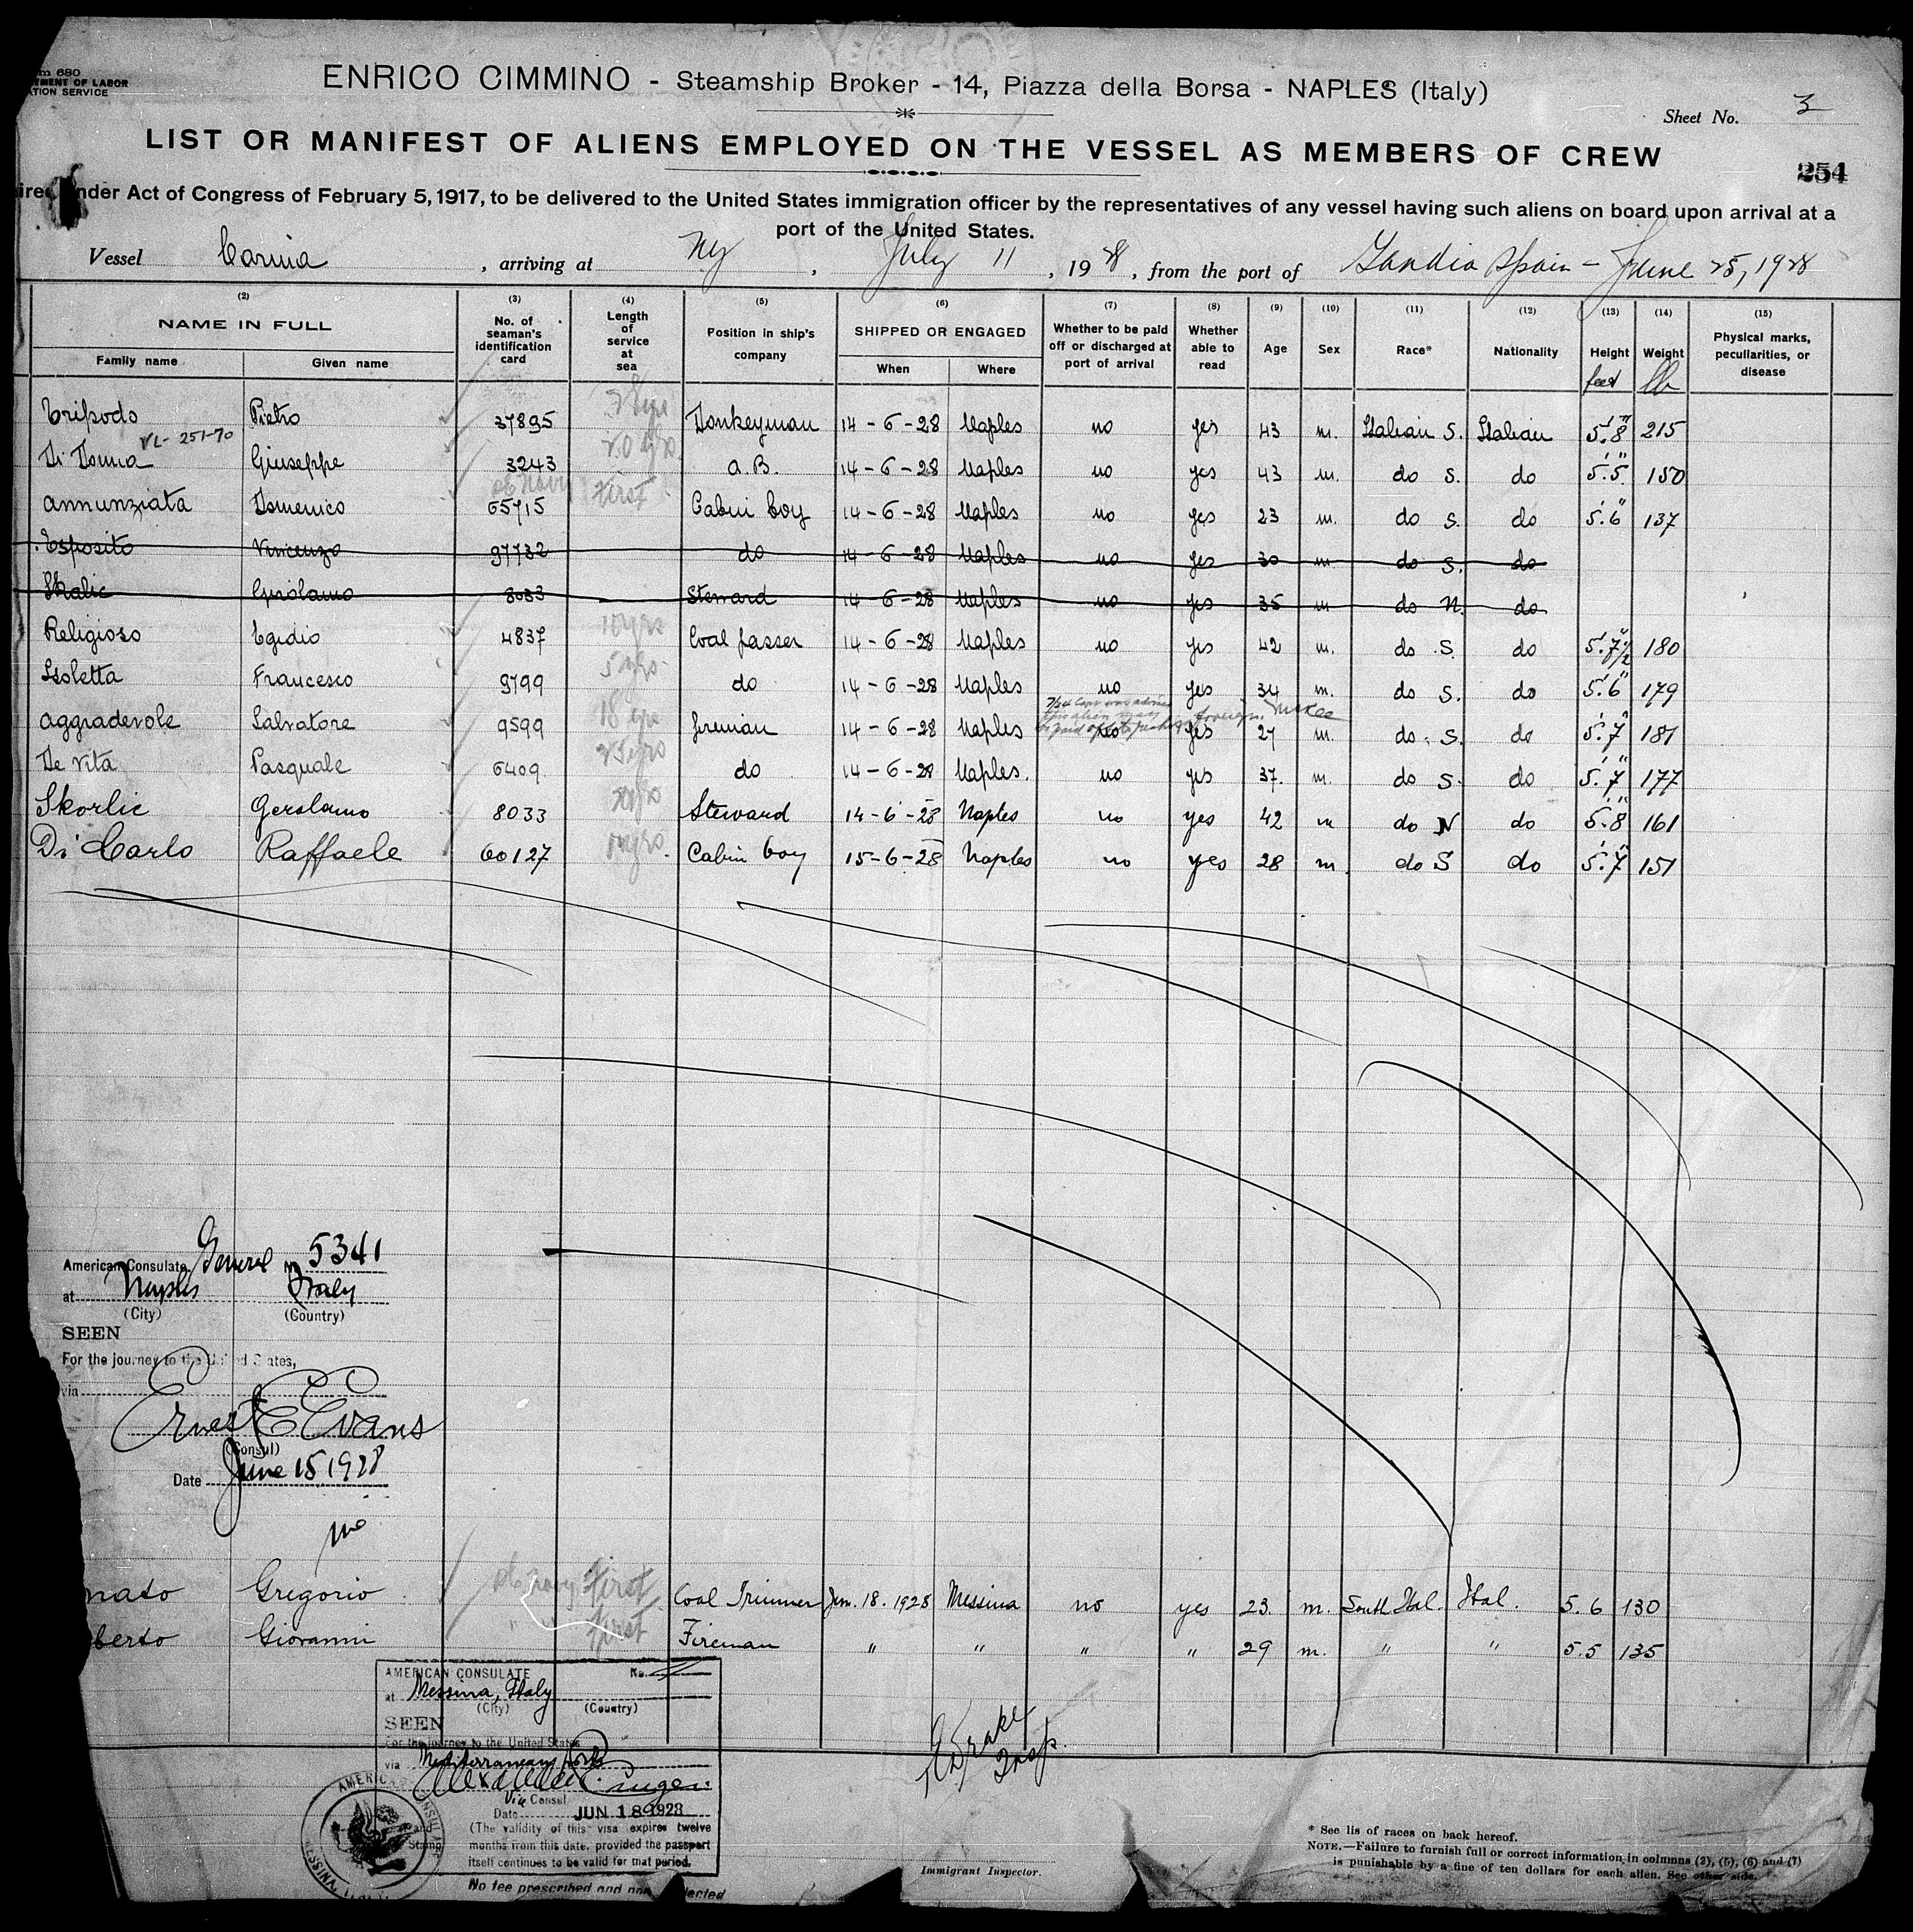 m 680
TMENT OF LABOR
ATION SERVICE
ENRICO CIMMINO - Steamship Broker - 14, Piazza della Borsa - NAPLES (Italy)
Sheet No. 3
LIST OR MANIFEST OF ALIENS EMPLOYED ON THE VESSEL AS MEMBERS OF CREW
254
ired under Act of Congress of February 5, 1917, to be delivered to the United States immigration officer by the representatives of any vessel having such aliens on board upon arrival at a
port of the United States.
Vessel Carina, arriving at Ny, July 11, 1928, from the port of Gandia Spain - June 25, 1928
(2) (3) (4) (5) (6) (7) (8) (9) (10) (11) (12) (13) (14) (15)
NAME IN FULL
Family name Given name
No. of seaman's identification card
Length of service at sea
Position in ship's company
SHIPPED OR ENGAGED
When Where
Whether to be paid off or discharged at port of arrival
Whether able to read
Age
Sex
Race*
Nationality
Height feet
Weight lb
Physical marks, peculiarities, or disease
Tripodo Pietro 37895 Donkeyman 14-6-28 Naples no yes 43 m. Italian S. Italian 5'.8" 215
VL- 251-70
Di Donna Giuseppe 3243 20 yrs. A.B. 14-6-28 Naples no yes 43 m. do S. do 5'.5" 150
Annunziata Domenico 65715 first Cabin boy 14-6-28 Naples no yes 23 m. do S. do 5'.6" 137
Esposito Vincenzo 97732 do 14-6-28 Naples no yes 30 m do S. do
Skalic Girolamo 8033 Steward 14-6-28 Naples no yes 35 m do N. do
Religioso Egidio 4837 10 yrs Coal passer 14-6-28 Naples no yes 42 m. do S. do 5'.7"1/2 180
Isoletta Francesco 9799 5 yrs. do 14-6-28 Naples no yes 34 m. do S. do 5'.6" 179
Aggradevole Salvatore 9599 18 yrs Fireman 14-6-28 Naples no yes 27 m. do S. do 5'.7" 187
De Vita Pasquale 6409 25 yrs do 14-6-28 Naples. no yes 37. m. do S. do 5'.7" 177
Skorlic Gerolamo 8033 Steward 14-6-28 Naples no yes 42 m do N do 5'.8" 161
Di Carlo Raffaele 60127 Cabin boy 15-6-28 Naples no yes 28 m. do S do 5'.7" 151
American Consulate General No. 5341
at Naples Italy
(City) (Country)
SEEN
For the journey to the United States,
via
Ernest E Evans
(Consul)
Date June 15 1928
nato Gregorio first Coal Trimmer Jun. 18. 1928 Messina no yes 23 m. South Ital. Ital. 5.6 130
berto Giovanni " first Fireman " " " " 29 m. " " 5.5 135
AMERICAN CONSULATE No.
at Messina, Italy
(City) (Country)
SEEN
For the journey to the United States
via Mediterranean Ports
Vice Consul
Date JUN 18 1928
(The validity of this visa expires twelve
months from this date, provided the passport
itself continues to be valid for that period.
No fee prescribed and none collected
Drake
Insp.
Immigrant Inspector.
* See lis of races on back hereof.
NOTE.—Failure to furnish full or correct information in columns (2), (5), (6) and (7)
is punishable by a fine of ten dollars for each alien. See other side.